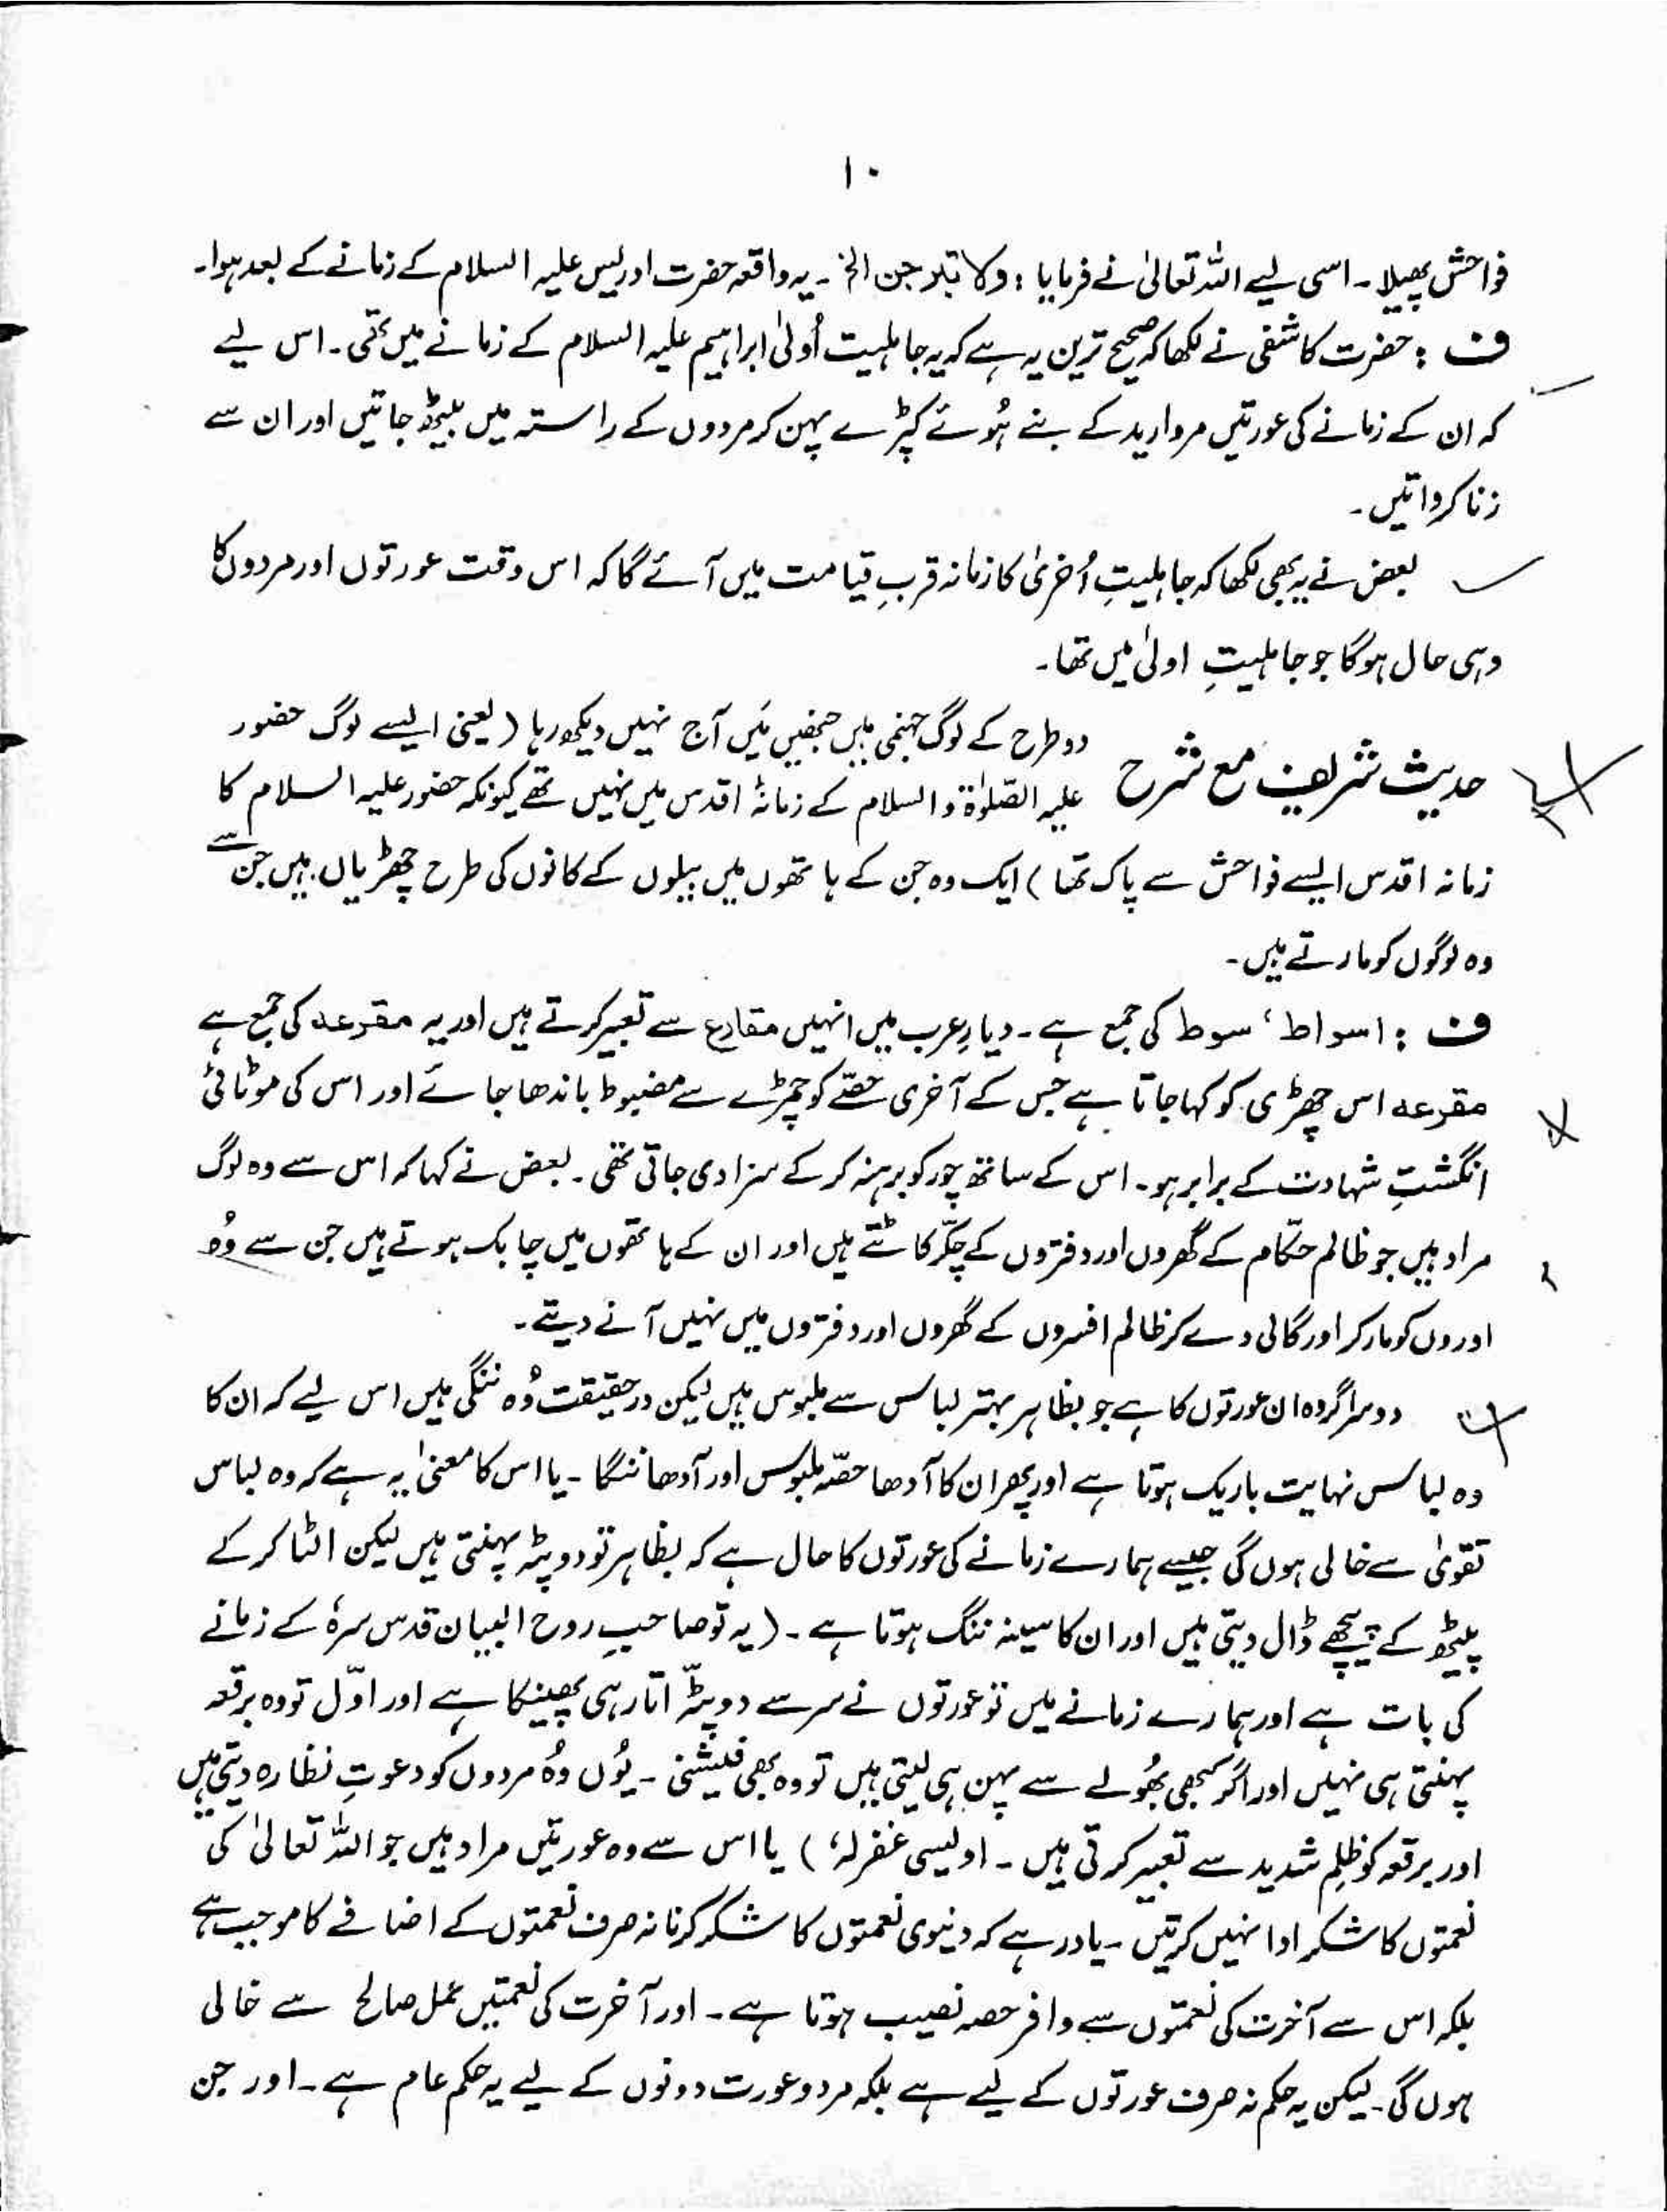 ۱۰
فواحش پھیلا۔ اسی لیے اللہ تعالیٰ نے فرمایا : ولا تبرجن الخ ۔ یہ واقعہ حضرت ادریس علیہ السلام کے زمانے کے بعد ہوا۔
ف : حضرت کاشفی نے لکھا کہ صحیح ترین یہ ہے کہ یہ جاہلیت اُولیٰ ابراہیم علیہ السلام کے زمانے میں تھی۔ اس لیے
کہ ان کے زمانے کی عورتیں مروارید کے بنے ہُوئے کپڑے پہن کر مردوں کے راستہ میں بیٹھ جاتیں اور ان سے
زنا کرواتیں۔
بعض نے یہ بھی لکھا کہ جاہلیتِ اُخریٰ کا زمانہ قربِ قیامت میں آئے گا کہ اس وقت عورتوں اور مردوں کا
وہی حال ہوگا جو جاہلیتِ اولیٰ میں تھا۔
حدیث شریف مع شرح
دو طرح کے لوگ جہنمی ہیں جنھیں مَیں آج نہیں دیکھ رہا (یعنی ایسے لوگ حضور
علیہ الصّلوٰۃ والسلام کے زمانۂ اقدس میں نہیں تھے کیونکہ حضور علیہ السلام کا
زمانہ اقدس ایسے فواحش سے پاک تھا) ایک وہ جن کے ہاتھوں میں بیلوں کے کانوں کی طرح چھڑیاں ہیں جن سے
وہ لوگوں کو مارتے ہیں۔
ف : اسواط ، سوط کی جمع ہے۔ دیارِ عرب میں انہیں مقارع سے تعبیر کرتے ہیں اور یہ مقرعہ کی جمع ہے
مقرعہ اس چھڑی کو کہا جاتا ہے جس کے آخری حصّے کو چمڑے سے مضبوط باندھا جائے اور اس کی موٹائی
انگشتِ شہادت کے برابر ہو۔ اس کے ساتھ چور کو برہنہ کر کے سزا دی جاتی تھی۔ بعض نے کہا کہ اس سے وہ لوگ
مراد ہیں جو ظالم حکّام کے گھروں اور دفتروں کے چکّر کاٹتے ہیں اور ان کے ہاتھوں میں چابک ہوتے ہیں جن سے وُہ
اوروں کو مار کر اور گالی دے کر ظالم افسروں کے گھروں اور دفتروں میں نہیں آنے دیتے۔
دوسرا گروہ ان عورتوں کا ہے جو بظاہر بہتر لباس سے ملبوس ہیں لیکن درحقیقت وُہ ننگی ہیں اس لیے کہ ان کا
وہ لباس نہایت باریک ہوتا ہے اور پھر ان کا آدھا حصّہ ملبوس اور آدھا ننگا ۔ یا اس کا معنیٰ یہ ہے کہ وہ لباس
تقویٰ سے خالی ہوں گی جیسے ہمارے زمانے کی عورتوں کا حال ہے کہ بظاہر تو دوپٹہ پہنتی ہیں لیکن الٹا کر کے
پیٹھ کے پیچھے ڈال دیتی ہیں اور ان کا سینہ ننگ ہوتا ہے۔ (یہ تو صاحبِ روح البیان قدس سرہٗ کے زمانے
کی بات ہے اور ہمارے زمانے میں تو عورتوں نے سر سے دوپٹّہ اتار ہی پھینکا ہے اور اوّل تو وہ برقعہ
پہنتی ہی نہیں اور اگر کبھی بھُولے سے پہن ہی لیتی ہیں تو وہ بھی فیشنی ۔ یُوں وُہ مردوں کو دعوتِ نظارہ دیتی ہیں
اور برقعہ کو ظلمِ شدید سے تعبیر کرتی ہیں ۔ اویسی غفرلہٗ) یا اس سے وہ عورتیں مراد ہیں جو اللہ تعالیٰ کی
نعمتوں کا شکر ادا نہیں کرتیں ۔ یاد رہے کہ دنیوی نعمتوں کا شکر کرنا نہ صرف نعمتوں کے اضافے کا موجب ہے
بلکہ اس سے آخرت کی نعمتوں سے وافر حصہ نصیب ہوتا ہے۔ اور آخرت کی نعمتیں عمل صالح سے خالی
ہوں گی۔ لیکن یہ حکم نہ صرف عورتوں کے لیے ہے بلکہ مرد و عورت دونوں کے لیے یہ حکم عام ہے۔ اور جن